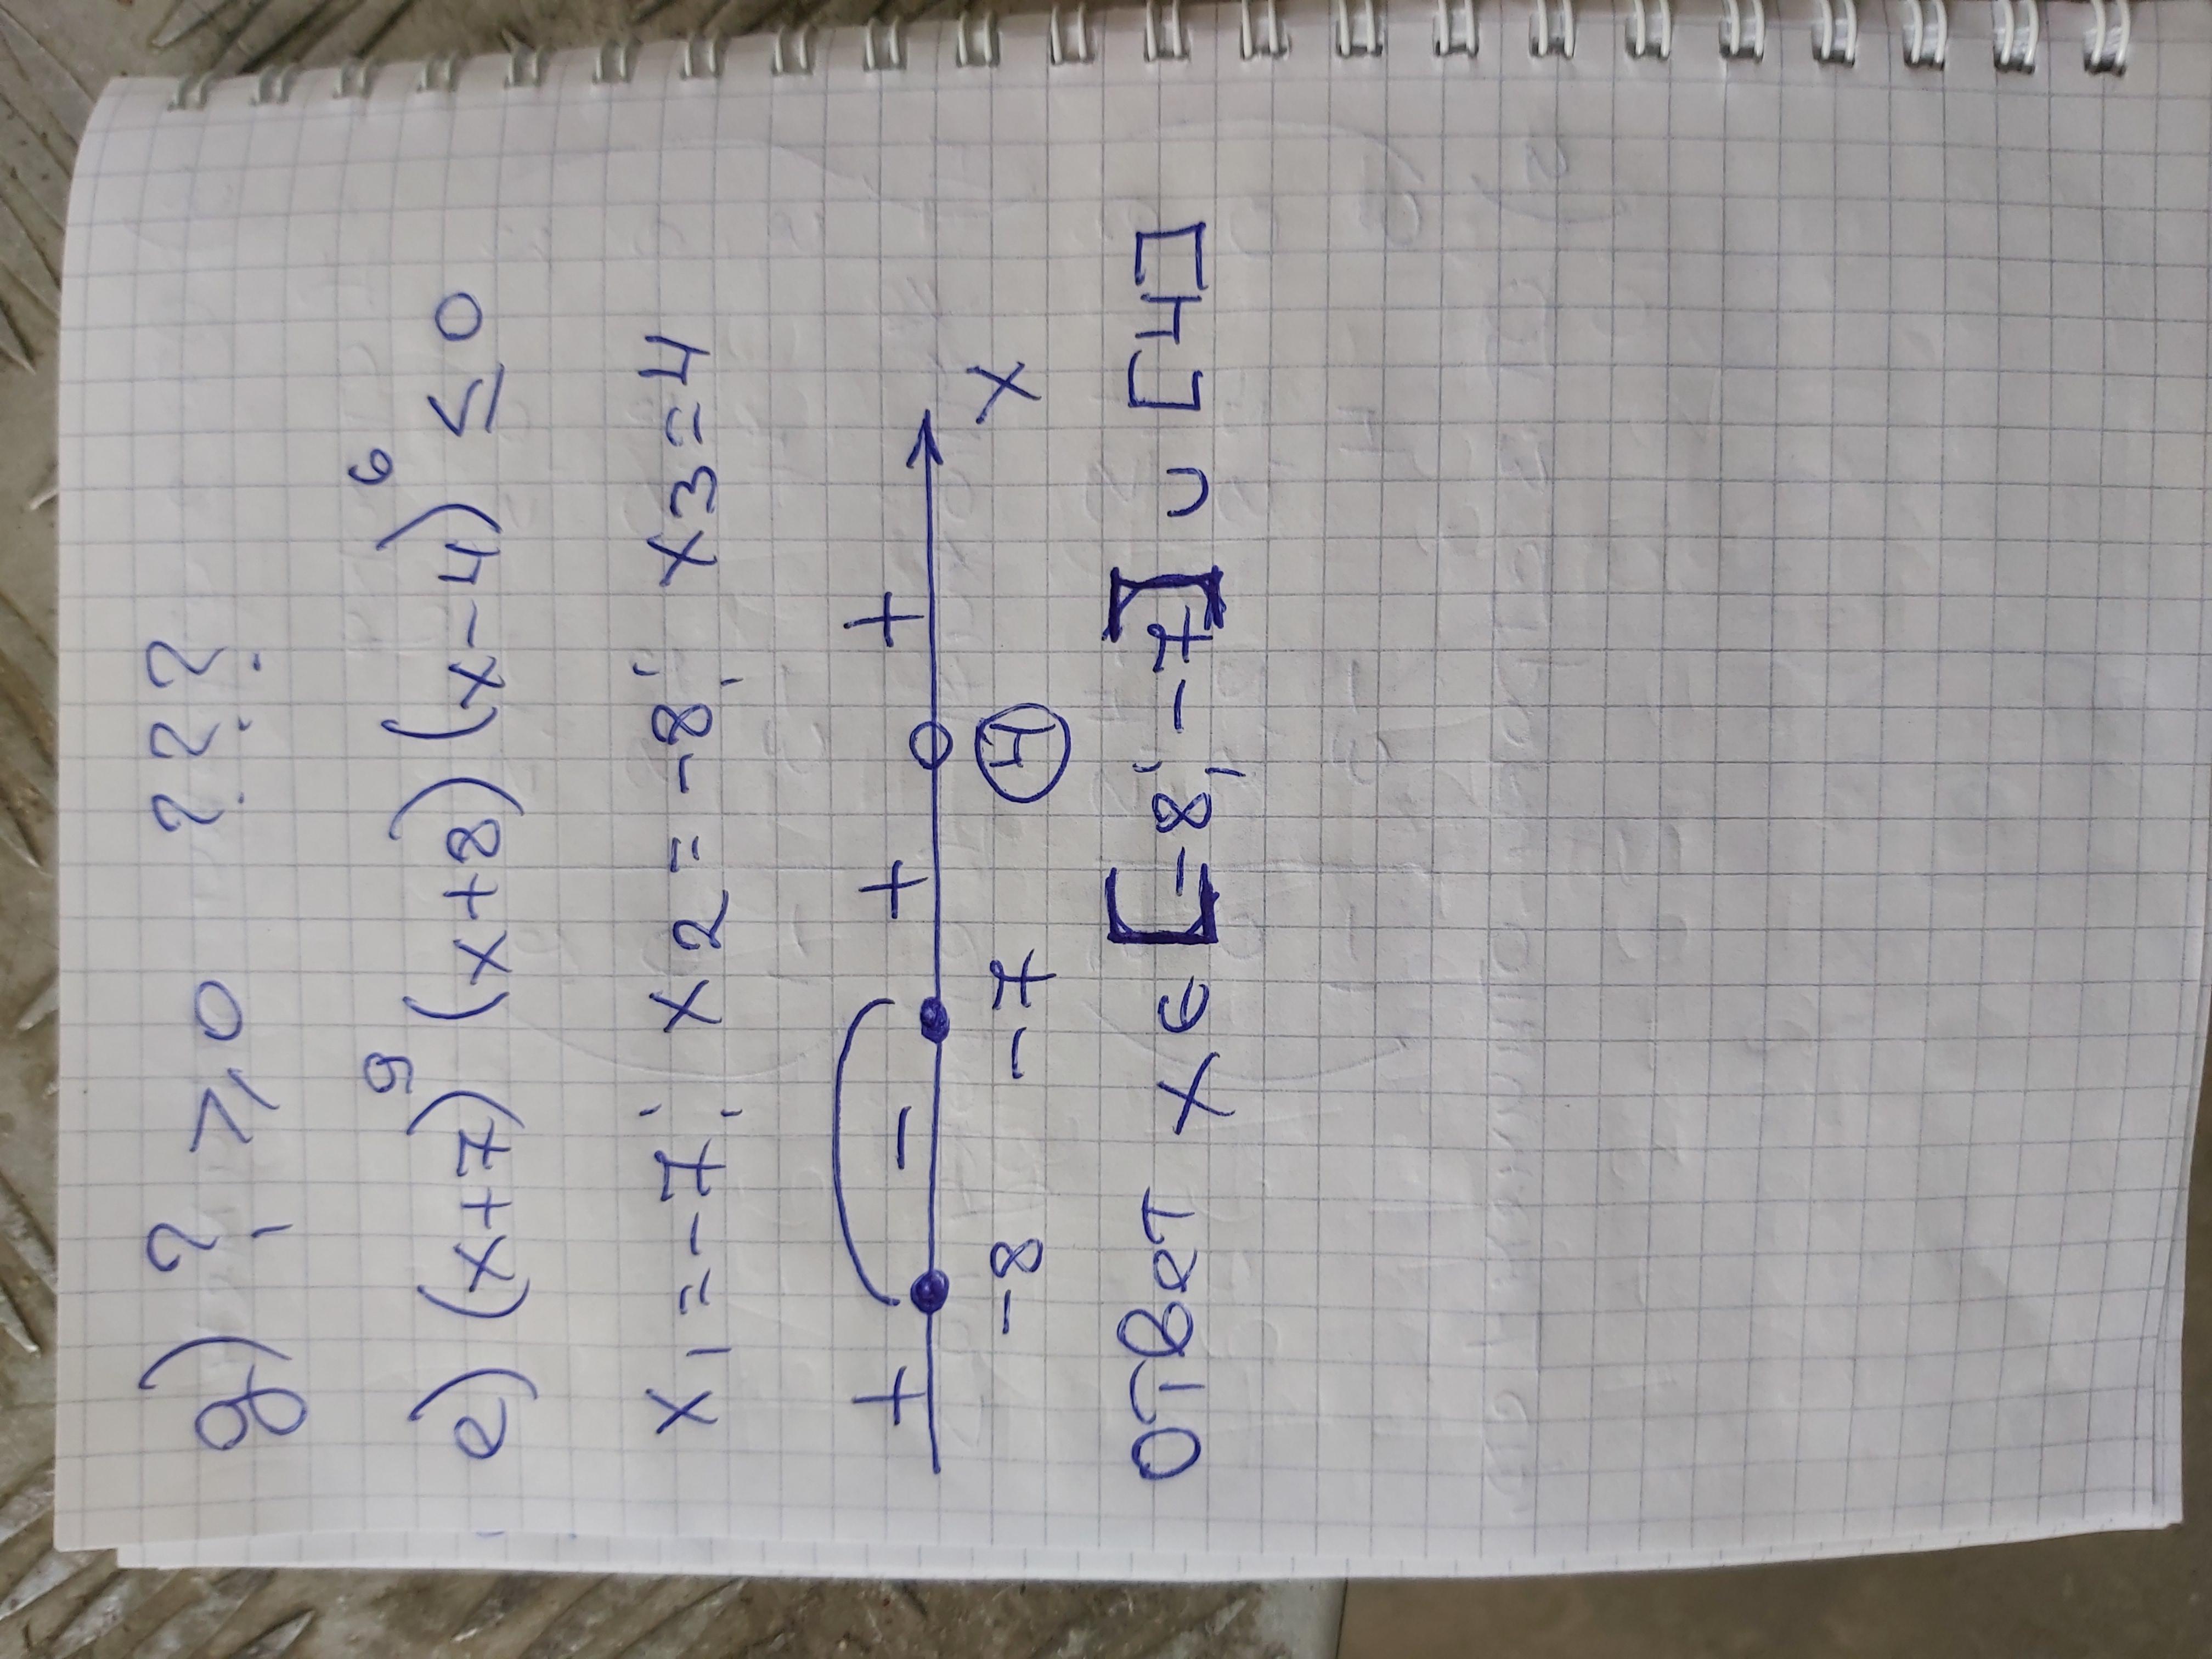 д) ? ≥ 0 ? ? ?
е) (x+7)⁹ (x+8) (x-4)⁶ ≤ 0
x1=-7; x2=-8; x3=4
+ - + +
-8 -7 4 x
Ответ x∈[-8;-7]∪[4]